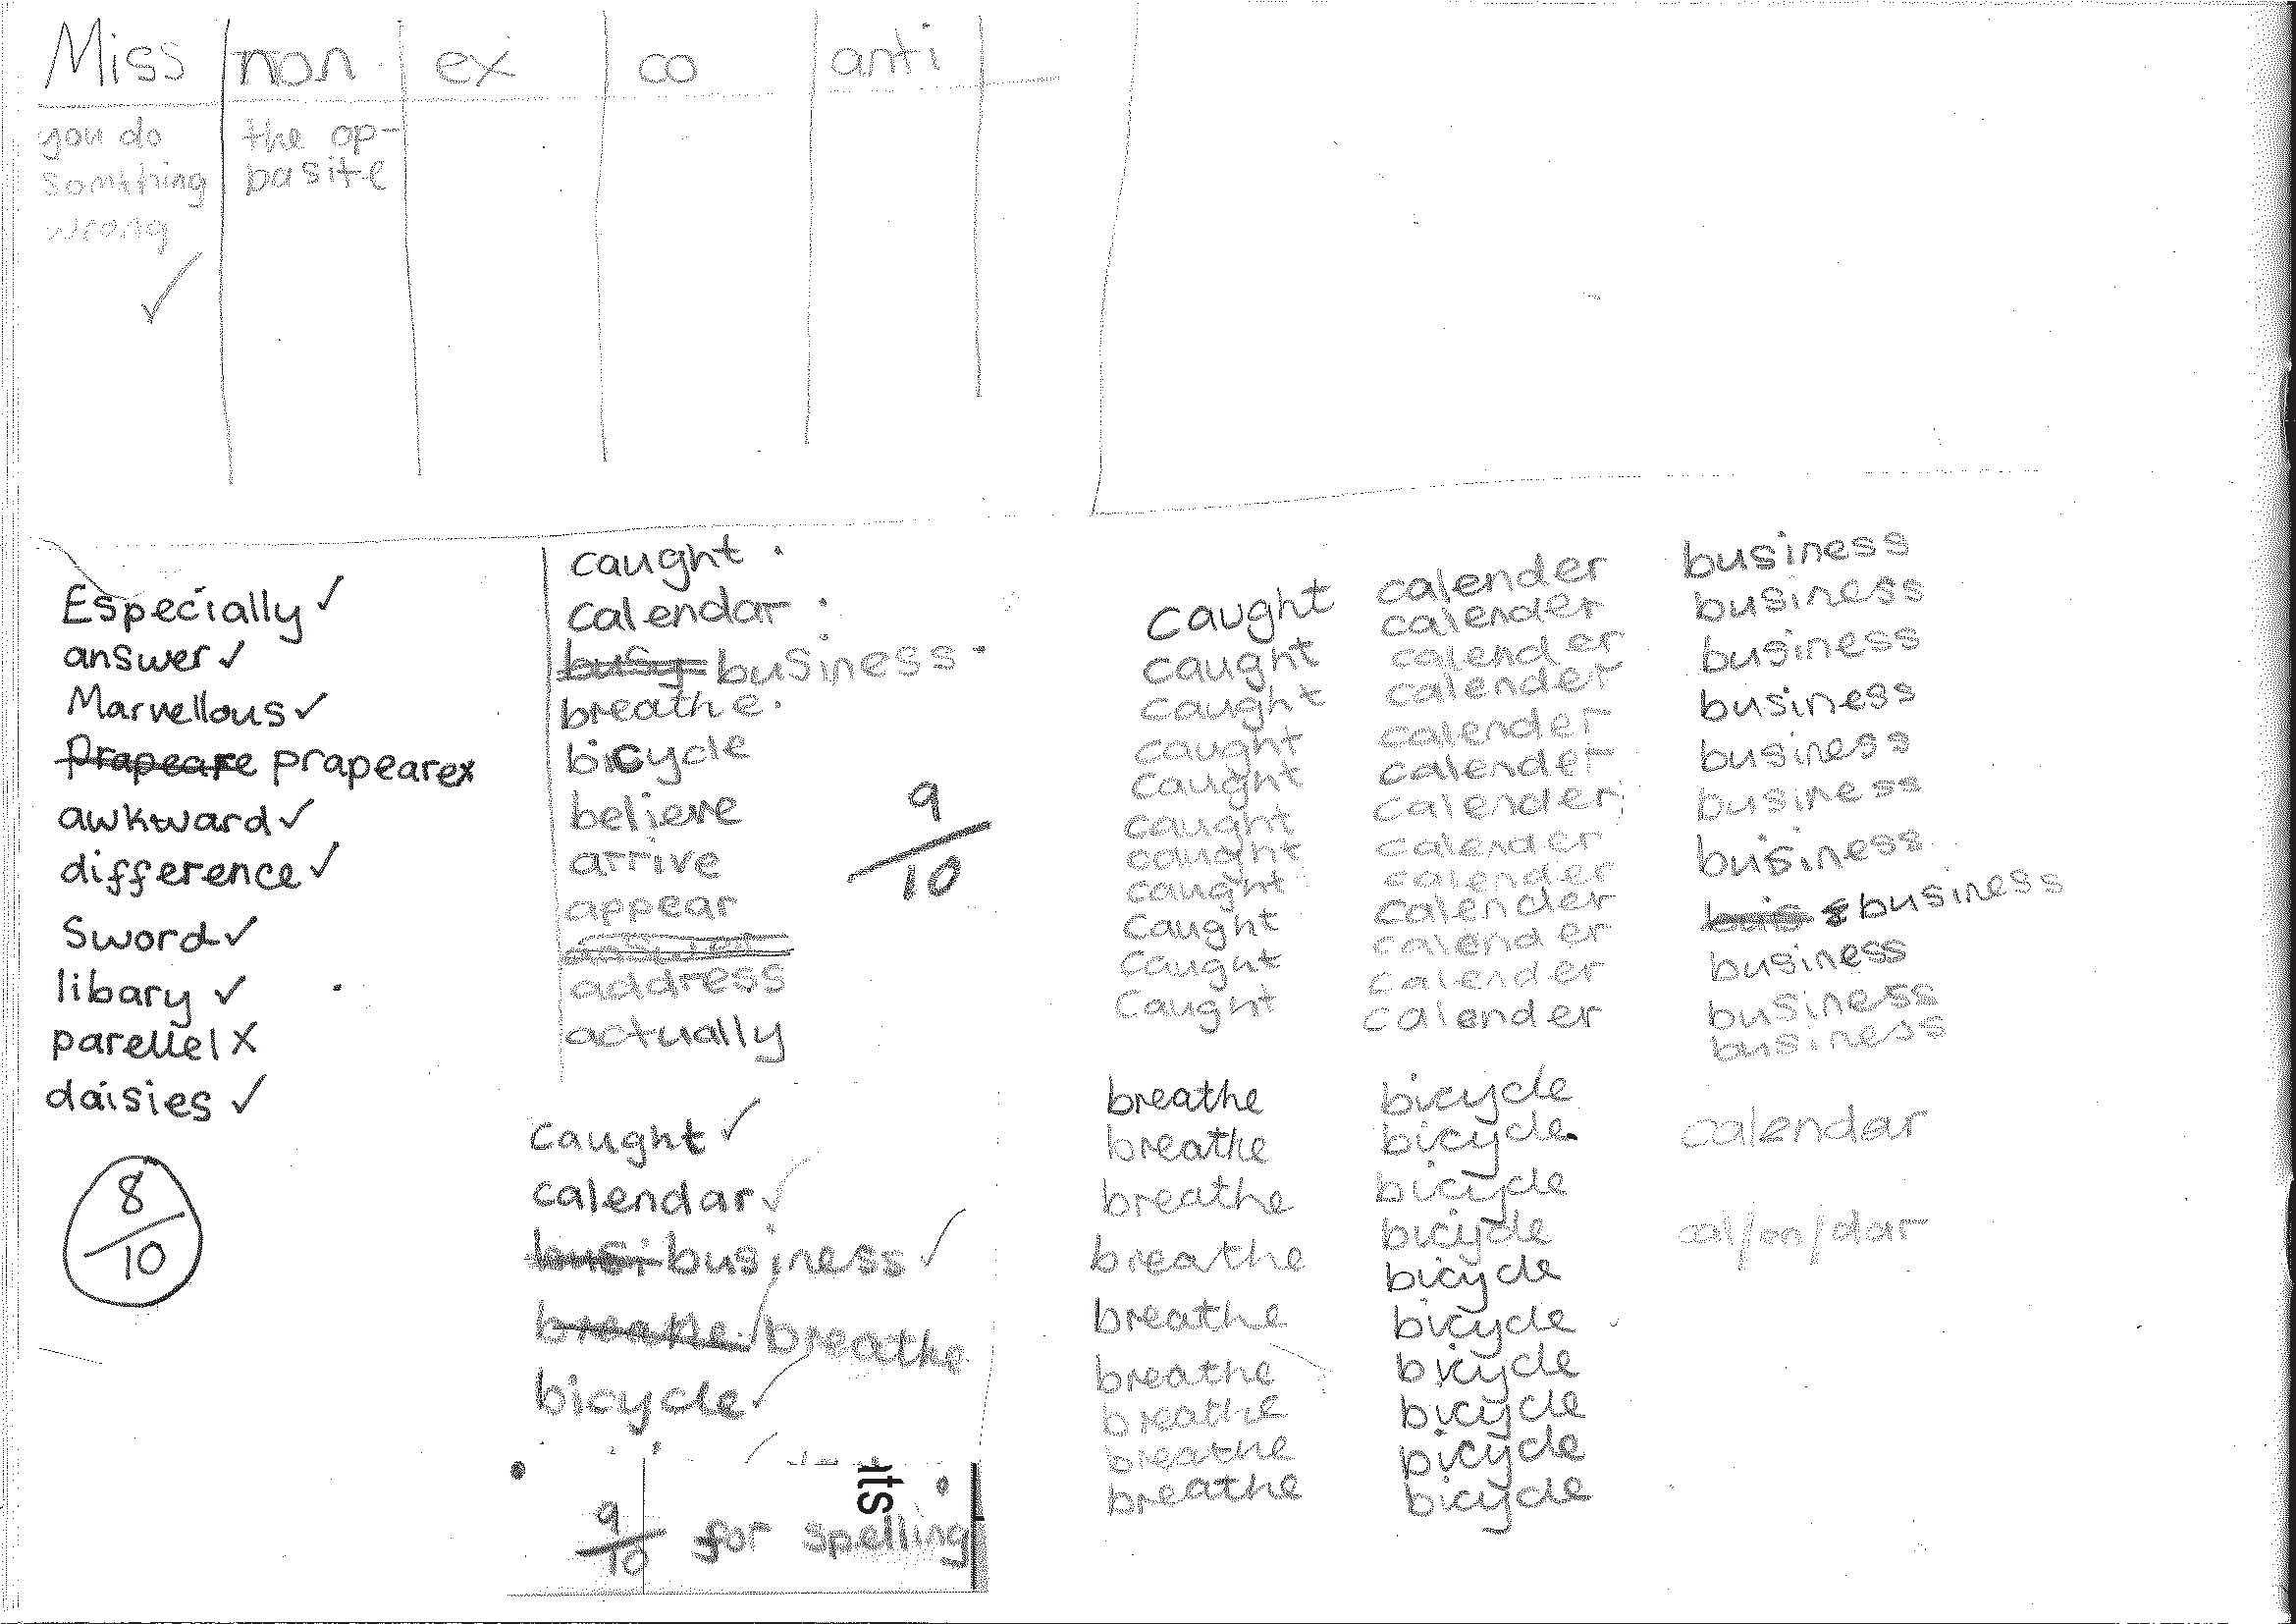 Miss non ex co anti
you do
somthing
wrong
the op-
basite
Especially ✓
answer ✓
Marvellous ✓
prapeare prapeare x
awkward ✓
difference ✓
Sword ✓
libary ✓
parellel X
daisies ✓
8/10
caught
calendar
busy business
breathe
bicycle
believe
arrive
appear
answer
address
actually
9/10
caught ✓
calendar ✓
busi business ✓
breathe breathe
bicycle ✓
9/10 for spelling
its
caught
caught
caught
caught
caught
caught
caught
caught
caught
caught
caught
calender
calender
calender
calender
calender
calender
calender
calender
calender
calender
calender
calender
calender
business
business
business
business
business
business
business
buis business
business
business
business
breathe
breathe
breathe
breathe
breathe
breathe
breathe
breathe
breathe
bicycle
bicycle
bicycle
bicycle
bicycle
bicycle
bicycle
bicycle
bicycle
bicycle
calendar
cal/en/dar